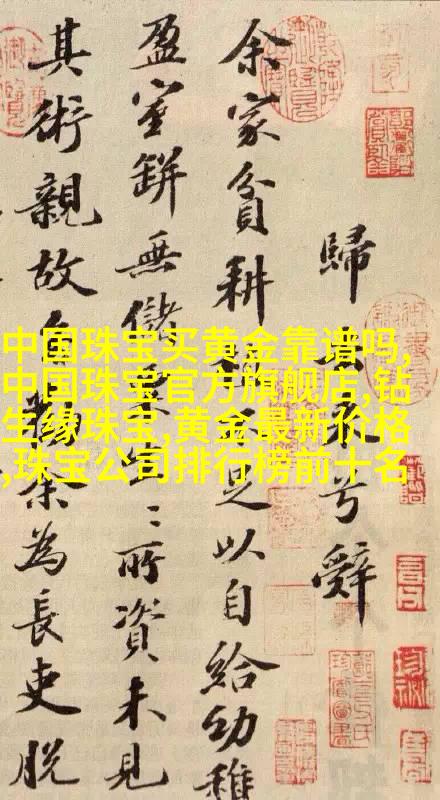 中国珠宝买黄金靠谱吗,
中国珠宝官方旗舰店,钻
生缘珠宝,黄金最新价格
,珠宝公司排行榜前十名
歸去來兮辭
余家貧耕植不足以自給幼稚
盈室缾無儲粟生〻所資未見
其術親故多勸余為長吏脫